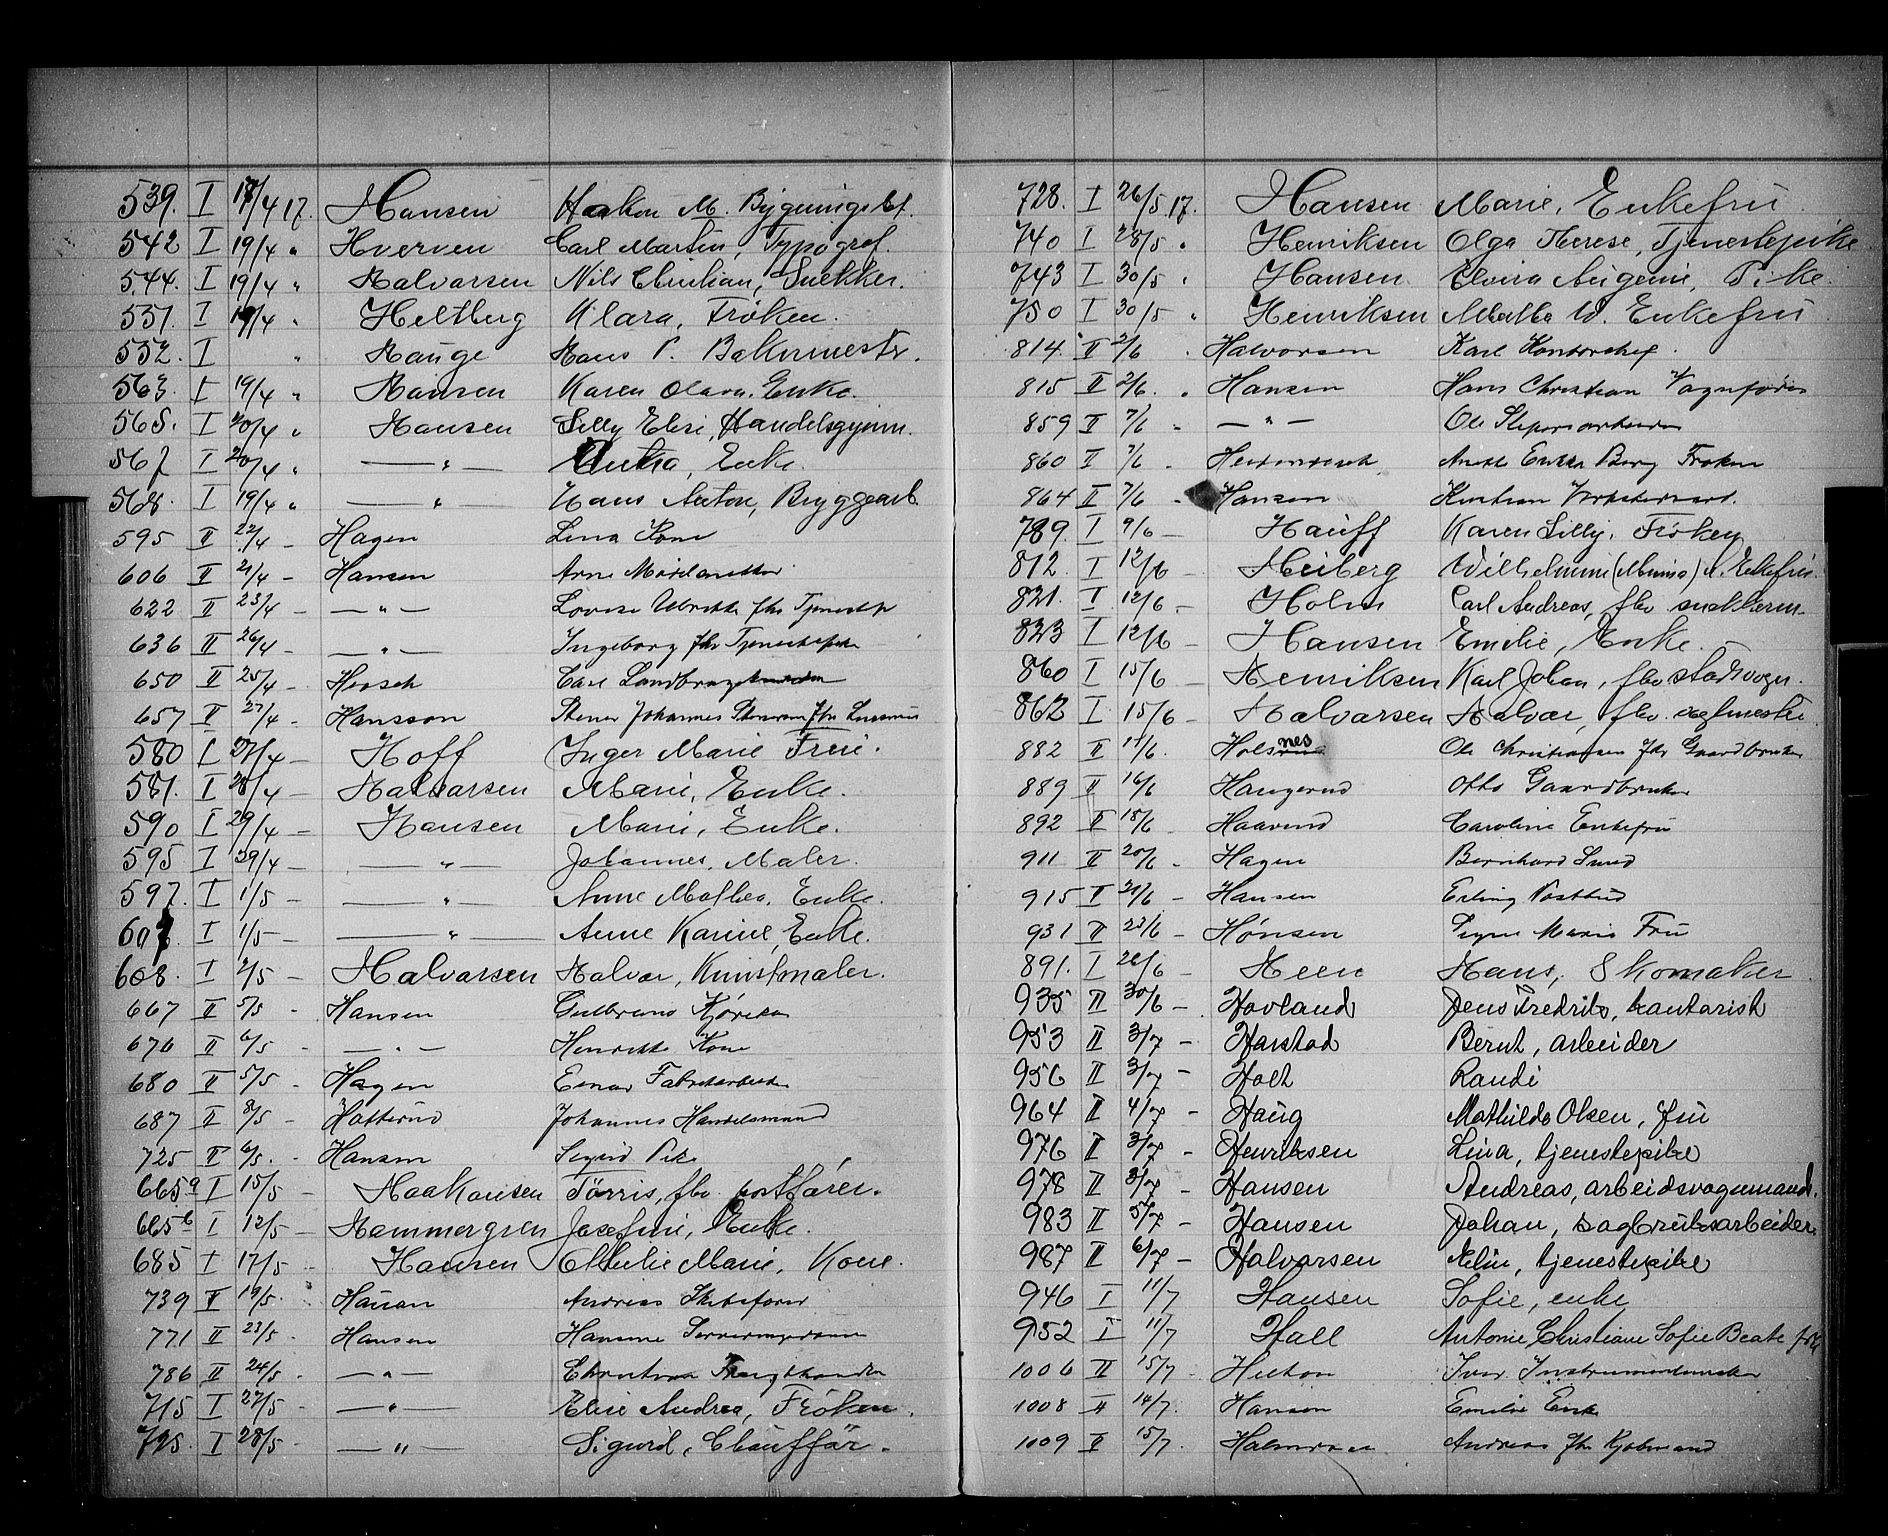 539. I 18/4 17. Hansen Haakon M. Bygningsbt.
542 I 19/4 " Hverven Carl Martin, Typograf.
544. I 19/4 " Halvorsen Nils Christian, Snekker.
551. I 19/4 " Heltberg Klara, Frøken.
552. I " Hauge Hans P. Bakermester.
563. I 19/4 " Hansen Karen Olava, Enke.
565. I 20/4 " Hansen Lilly Elise, Handelsgymn.
567 I 20/4 " — " — Enke.
568. I 19/4 " — " — Hans Anton, Bryggearb.
595 II 22/4 — Hagen Lina Kone
606 II 21/4 — Hansen Arne
622 II 23/4 — — " — Lovise Ulrikke fhv Tjenestp
636 II 26/4 — — " — Ingeborg fhv Tjenestepike
650 II 25/4 — Hersch Carl
657 II 27/4 — Hansson Stener Johannes fhv
580 I 27/4 — Hoff Inger Marie Frue.
581. I 28/4 — Halvorsen Marie, Enke.
590 I 29/4 — Hansen Marie, Enke.
595 I 29/4 — — " — Johannes, Maler.
597. I 1/5 — — " — Anne Mathea, Enke.
607 I 1/5 — — " — Anne Karine, Enke.
608. I 2/5 — Halvorsen Halvor, Kunstmaler.
667 II 5/5 - Hansen Gulbrand Kjørekar
676 II 6/5 - — " — Henrikke Kone
680 II 5/5 - Hagen Einar Fabrikarbeider
687 II 8/5 - Hatterud Johannes Handelsmand
725 II 6/5. - Hansen Sigrid Pike
665a I 15/5 — Haakonsen Tørris, fhv. postfører.
665b I 12/5 — Hammergren Josefine, Enke.
685 I 17/5 — Hansen Othilie Marie, Kone.
739 II 19/5. Hauan Andreas Skibsfører
771 II 23/5 . Hansen Hansine Serveringsdame
786 II 24/5 . — " — Christian Fragthandler
715 I 27/5 - — " — Elise Andrea, Frøken.
725. I 28/5 - — " — Sigurd, Chauffør.
728. I 26/5 17. Hansen Marie, Enkefru
740 I 28/5 " Henriksen Olga Therese, Tjenestepike
743 I 30/5 " Hansen Elvira Augenie, Pike.
750 I 30/5 " Henriksen Martha W. Enkefru
814. II 2/6 " Halvorsen Karl Kontorchef.
815 II 2/6. " Hansen Hans Christian Vognfører
859 II 7/6 " — " — Ole Sliperiarbeider
860 II 7/6 - Berg Frøken
864 II 7/6 " Hansen Kristian
789. I 9/6 — Hauff Karen Lilly, Frøken
812. I 12/6 — Heiberg Wilhelmine (Mima) Enkefru.
821. I 12/6 — Holm Carl Andreas, fhv snekkerm.
823 I 12/6 — Hansen Emilie, Enke.
860 I 15/6 — Henriksen Karl Johan, fhv stadsvogn.
862 I 15/6 — Halvorsen Halvor, fhv.
882 II 11/6. Holsnes Ole Christiansen fhv Gaardbruker
889 II 16/6 Haugerud Otto Gaardbruker
892 II 18/6 Haavind Caroline Enkefru
911 II 20/6 - Hagen Bernhard Smed
915 II 21/6 - Hansen Erling Postbud
931 II 23/6 - Hønsen Signe Marie Fru
891. I 26/6 — Heen Hans, Skomaker
935 II 30/6 — Hovland Jens Fredrik, kantorist
953 II 3/7 — Harstad Bernt, arbeider
956 II 3/7 — Holt Randi
964 II 4/7 — Haug Mathilde Olsen, fru
976 II 3/7 — Henriksen Lina, tjenestepike
978 II 3/7 — Hansen Andreas, arbeidsvognmand.
983 II 5/7 — Hansen Johan, sagbruksarbeider.
987 II 6/7 — Halvorsen Elin, tjenestepike
946 I 11/7 Hansen Sofie, enke
952 I 11/7 Hall Antonie Christiane Sofie Beate frk
1006 II 15/7 Helton Iver Instrumentmaker
1008 II 14/7. Hansen Emilie Enke
1009 II 15/7. Halvorsen Andreas fhv Kjøbmand